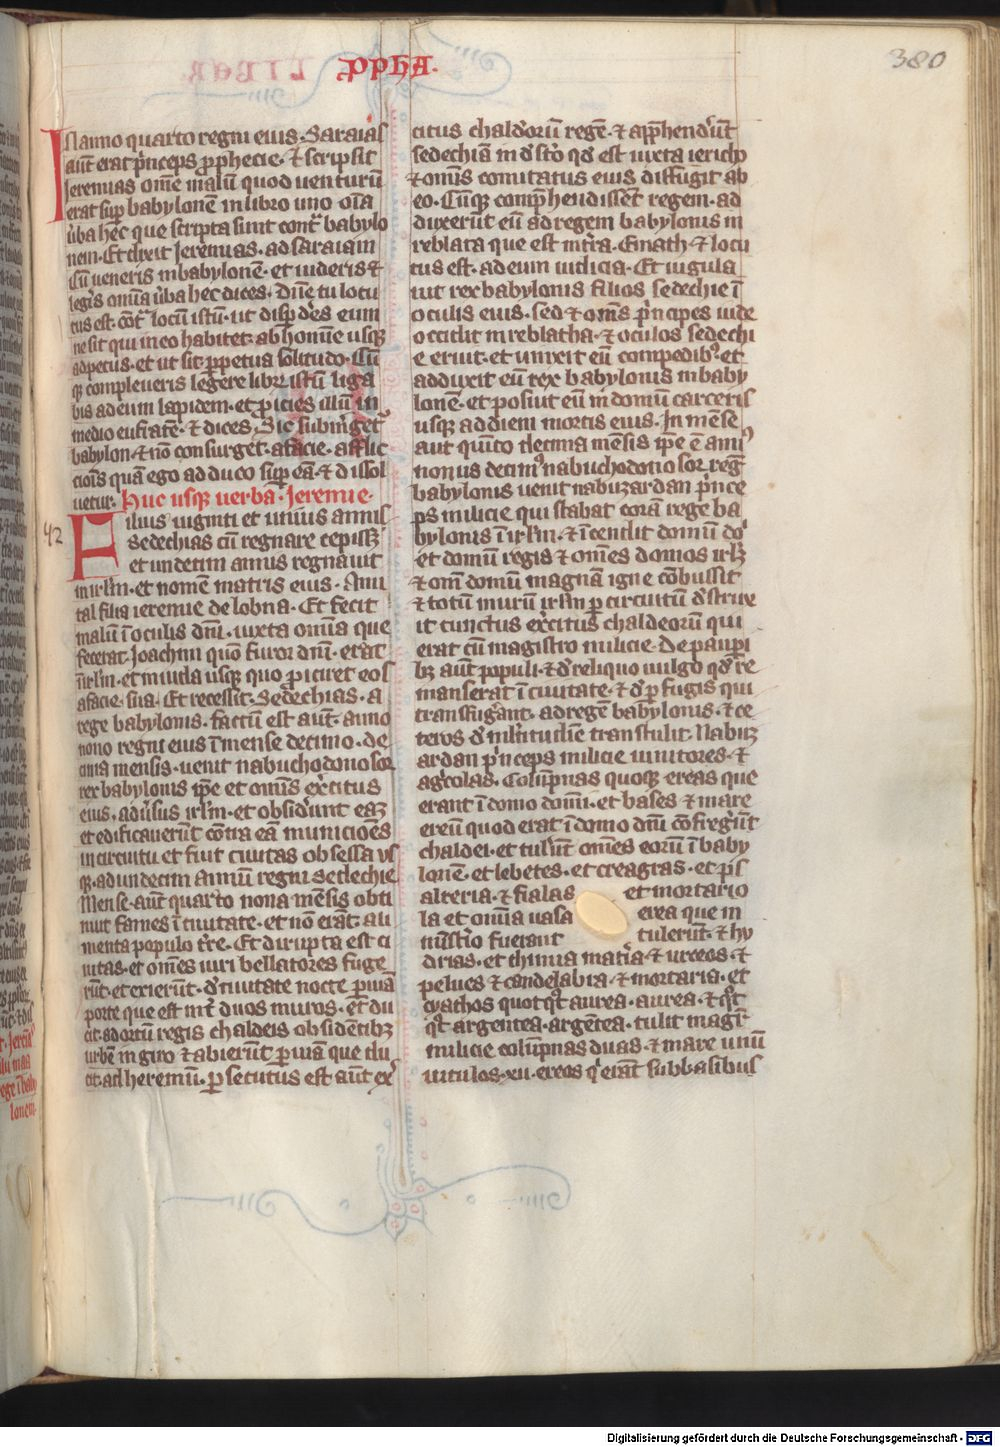 PPHA.
380
In anno quarto regni eius. Saraias
aut̄ erat p̄nceps prophecie. ⁊ scripsit
Jeremias om̄e malū quod uenturū
erat sup̄ babylonē in libro uno om̄ia
ūba hec que scripta sunt cont̄ babylo
nem. Et dixit Jeremias. ad saraiam
Cū ueneris in babylonē. et uideris ⁊
legis omnia ūba hec dices. Dn̄e tu locu
tus est cont̄ locū istū. ut disp̄des eum
ne sit qui in eo habitet. ab homine usq̄
ad pecus. et ut sit perpetua solitudo. Cū
q̄ compleueris legere librū istū liga
bis ad eum lapidem. et proicies illū in
medio eufraten. ⁊ dices. Sic submgetˀ
babylon ⁊ nō consurget. a facie. afflic
cōis quā ego adduco sup̄ eā. ⁊ dissol
uetur. Huc usq̄ uerba. Jeremie.
42
Filius uiginti et unius annis
sedechias cū regnare cepisset
et undecim annis regnauit
in irl̄m. et nomē matris eius. Ami
tal filia ieremie de lobna. Et fecit
malū ī oculis dn̄i. iuxta omnia que
fecerat Joachim quō furor dn̄i. erat
ī irl̄m. et in iuda usq̄ quo proiceret eos
a facie. sua. Et recessit. Sedechias. a
rege babylonis. factū est aut̄. anno
nono regni eius ī mense decimo. de
cima mensis. uenit nabuchodonosor
rex babylonis ip̄e et omīs exercitus
eius. adūsus irl̄m. et obsider̄unt eaꝫ
et edificauerūt contra eā municiōes
in circuitu et fuit ciuitas obsessa us
q̄. ad undecim annū regni sedechie
Mense. aut̄ quarto nona mēsis obti
nuit fames ī ciuitate. et nō erāt. ali
menta populo t̄re. Et dirupta est ci
uitas. et omēs uiri bellatores fuge
rūt. et exierūt. de ciuitate nocte per uiā
porte que est int̄ duos muros. et du
cit. ad ortū regis chaldeis obsidētibꝫ
urbē in giro ⁊ abierūt per uiā que du
cit. ad heremū. persecutus est aut̄ ex̄
citus chaldeorū regē. ⁊ apprehendūt
sedechiā in deserto qd̄ est iuxta iericho
⁊ omīs comitatus eius diffugit ab
eo. Cūq̄ comprehendissent regem. ad
duxerūt eū ad regem babylonis in
reblata que est in t̄ra. Emath. ⁊ locu
tus est. ad eum iudicia. Et iugula
uit rex babylonis filios sedechie ī
oculis eius. sed ⁊ omīs p̄ncipes iude
occidit in reblatha. ⁊ oculos sedechi
e eruit. et uinxit eū compedibˀ. et
adduxit eū rex babylonis in baby
lonē. et posiuit eū in domū carceris
usq̄ ad diem mortis eius. In mēse
aut̄ quīto decima mēsis ip̄e ē annˀ
nonus decimˀ nabuchodonosor. regˢ
babylonis uenit nabuzardan p̄nce
ps milicie qui stabat corā rege ba
bylonis ī irl̄m. ⁊ īcendit domū do
et domū regis ⁊ omēs domos irl̄ꝫ
⁊ om̄ domū magnā igne cōbussit
⁊ totū murū irl̄m per circuitū destrux
it cunctus exercitus chaldeorū qui
erat cū magistro milicie. De pauperi
bꝫ aut̄ populi. ⁊ de reliquo uulgo qd̄ re
manserat ī ciuitate. ⁊ de perfugis qui
transfugerant. ad regē babylonis. ⁊ ce
teros de multitudine transtulit. Nabuꝫ
ardan p̄nceps milicie uinitores. ⁊
agricolas. Columpnas quoq̄ ereas que
erant ī domo domī. et bases ⁊ mare
ereū quod erat ī domo dn̄i cōfregerūt
chaldei. et tulerūt omēs eorū ī baby
lonē. et lebetes. et creagras. et ps
alteria. ⁊ fialas et mortario
la et omīa uasa erea que in
mīstio fuerant tulerūt. ⁊ hy
drias. et thimiamatia ⁊ urceos ⁊
pelues ⁊ candelabra. ⁊ mortaria. et
cyathos quotqt̄ aurea. aurea. ⁊ qt̄
qt̄ argentea. argētea. tulit magir̄
milicie colūpnas duas. ⁊ mare unū
uitulos. xii. ereos q̄ erāt sub basibus
Digitalisierung gefördert durch die Deutsche Forschungsgemeinschaft - DFG